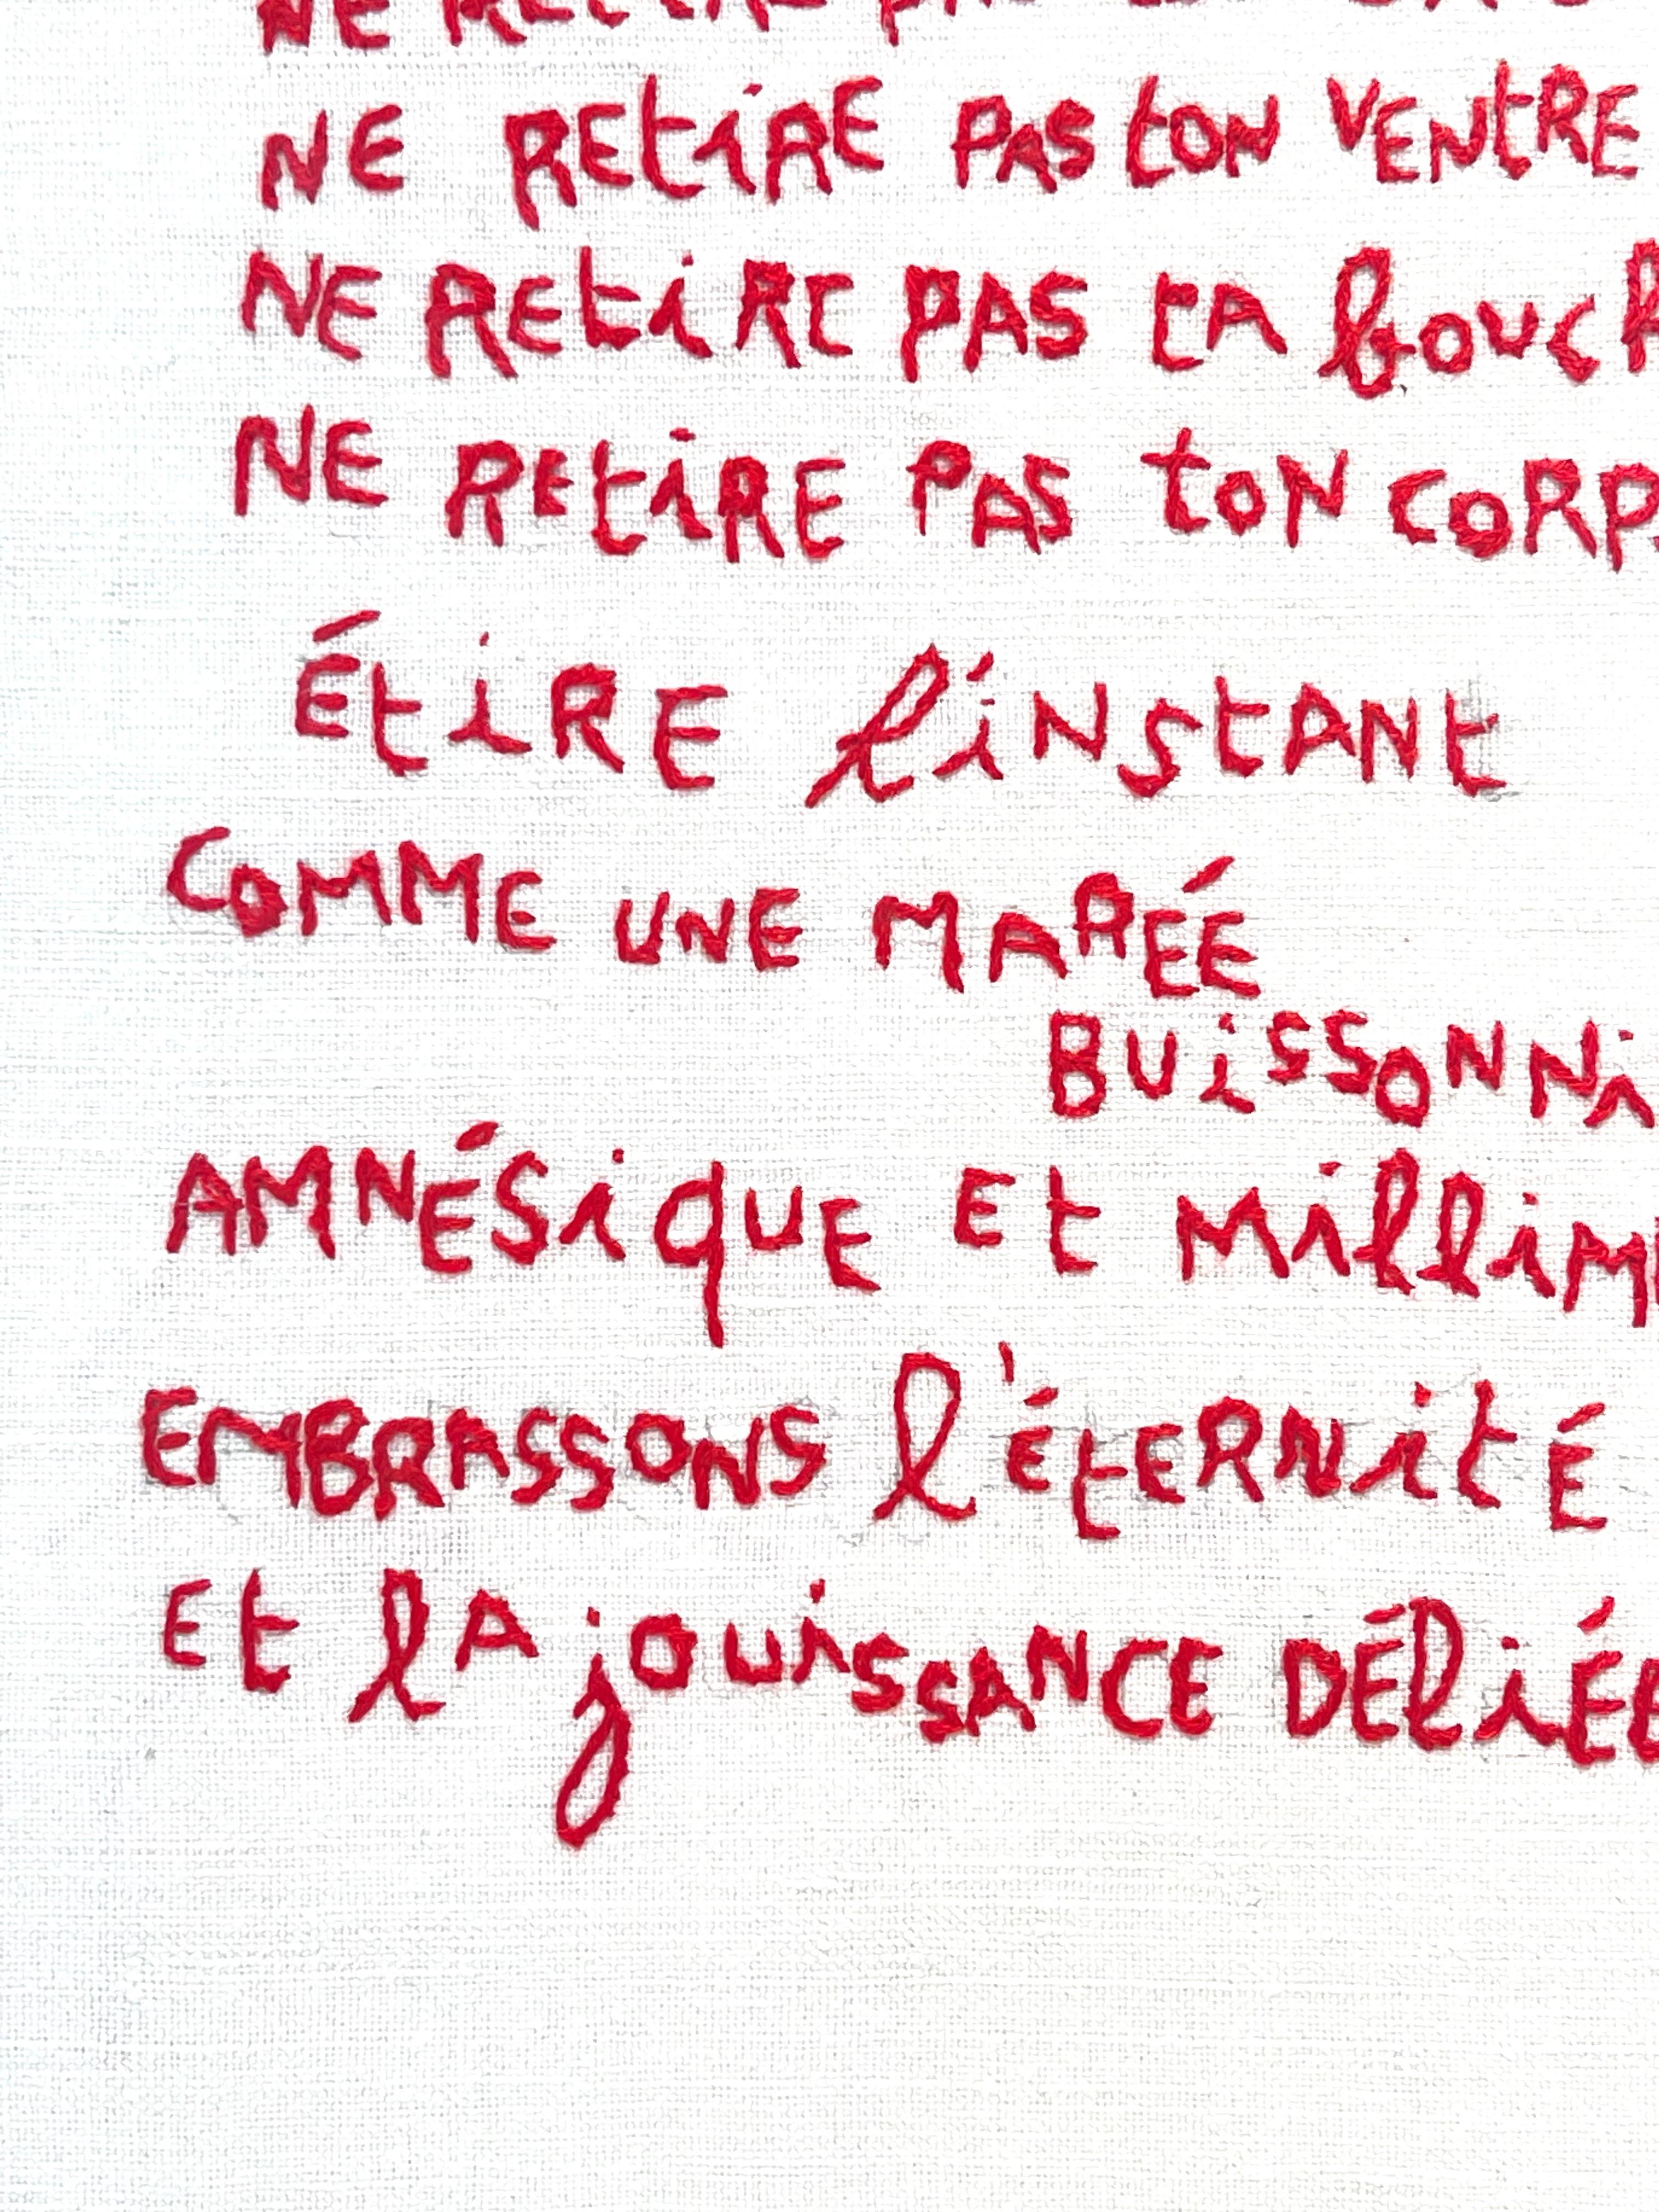 NE RETIRE PAS
NE RETIRE PAS TON VENTRE
NE RETIRE PAS TA BOUCH
NE RETIRE PAS TON CORPS
ÉTIRE l'INSTANT
COMME UNE MARÉE
BUISSONNI
AMNÉSIQUE ET MILLIM
EMBRASSONS l'ÉTERNITÉ
ET lA jOUISSANCE DÉLIÉE